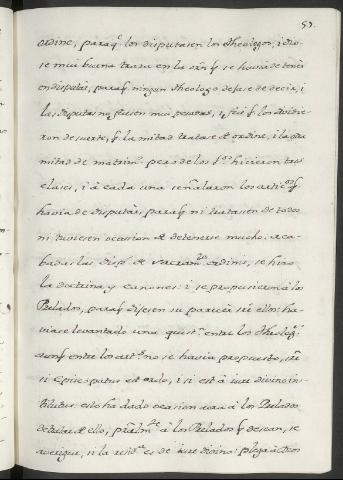 59.
ordine, paraq̃ los disputasen los Theologos, i dio
se mui buena traza en la ordẽ q̃ se havia de tener
en disputas, paraq̃ ningun Theologo dejase de decir, i
las disputas no fuesen mui pesadas, q̃ fue q̃ los dividie
ron de suerte, q̃ la mitad tratase de ordine, i la otra
mitad de matrimº. pero de los pros hicieron tres
clases, i à cada una señalaron los articos q̃
havia de disputar, paraq̃ ni tratasen de todos
ni tuviesen ocasion de detenerse mucho: aca-
badas las dispas de sacramto ordinis, se hizo
la doctrina, y canones: i se propusieron à los
Prelados, paraq̃ dijesen su parecer sre ellos: ha-
viase levantado una questn entre los Theologs
aunq̃ entre los artos no se havia propuesto, sre
si Episcopatus est ordo, i si està iure divino ins-
titutus: esto ha dado ocasion aora à los Prelados
de tratar de ello, prãlmte à los Prelados q̃ desean, se
averigue, si la residª es de iure divino: plega à Dios